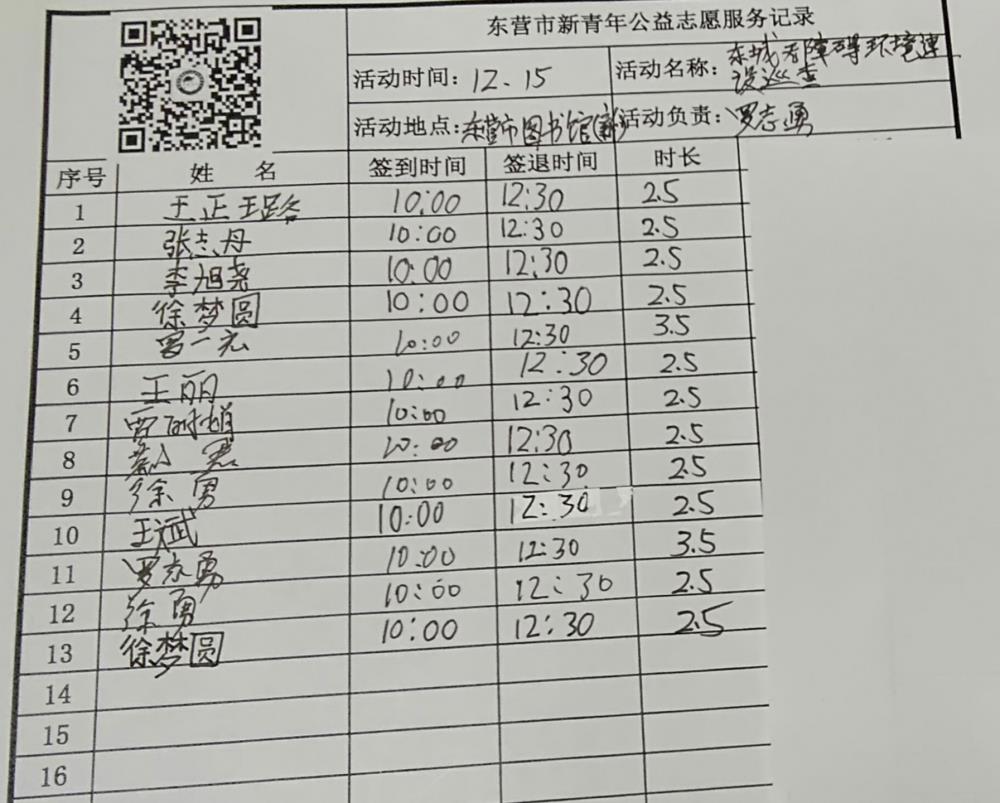 东营市新青年公益志愿服务记录
活动时间：12.15 活动名称：东城无障碍环境建设巡查
活动地点：东营市图书馆(新) 活动负责：罗志勇
序号 姓 名 签到时间 签退时间 时长
1 王正璐 10:00 12:30 2.5
2 张志丹 10:00 12:30 2.5
3 李旭尧 10:00 12:30 2.5
4 徐梦圆 10:00 12:30 2.5
5 罗一宏 10:00 12:30 3.5
6 王丽 10:00 12:30 2.5
7 贾 10:00 12:30 2.5
8 10:00 12:30 2.5
9 徐勇 10:00 12:30 2.5
10 王斌 10:00 12:30 2.5
11 罗志勇 10:00 12:30 3.5
12 徐勇 10:00 12:30 2.5
13 徐梦圆 10:00 12:30 2.5
14
15
16